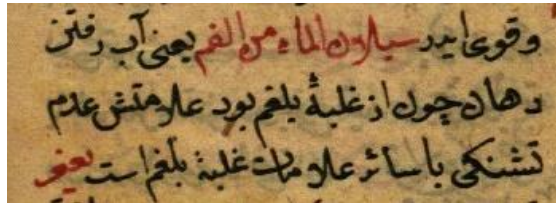 وقوی اید سیلان الماء من الفم یعنی آب رفتن
دهان چون از غلبهٔ بلغم بود علامتش عدم
تشنکی با سائر علامات غلبهٔ بلغم است یعنی